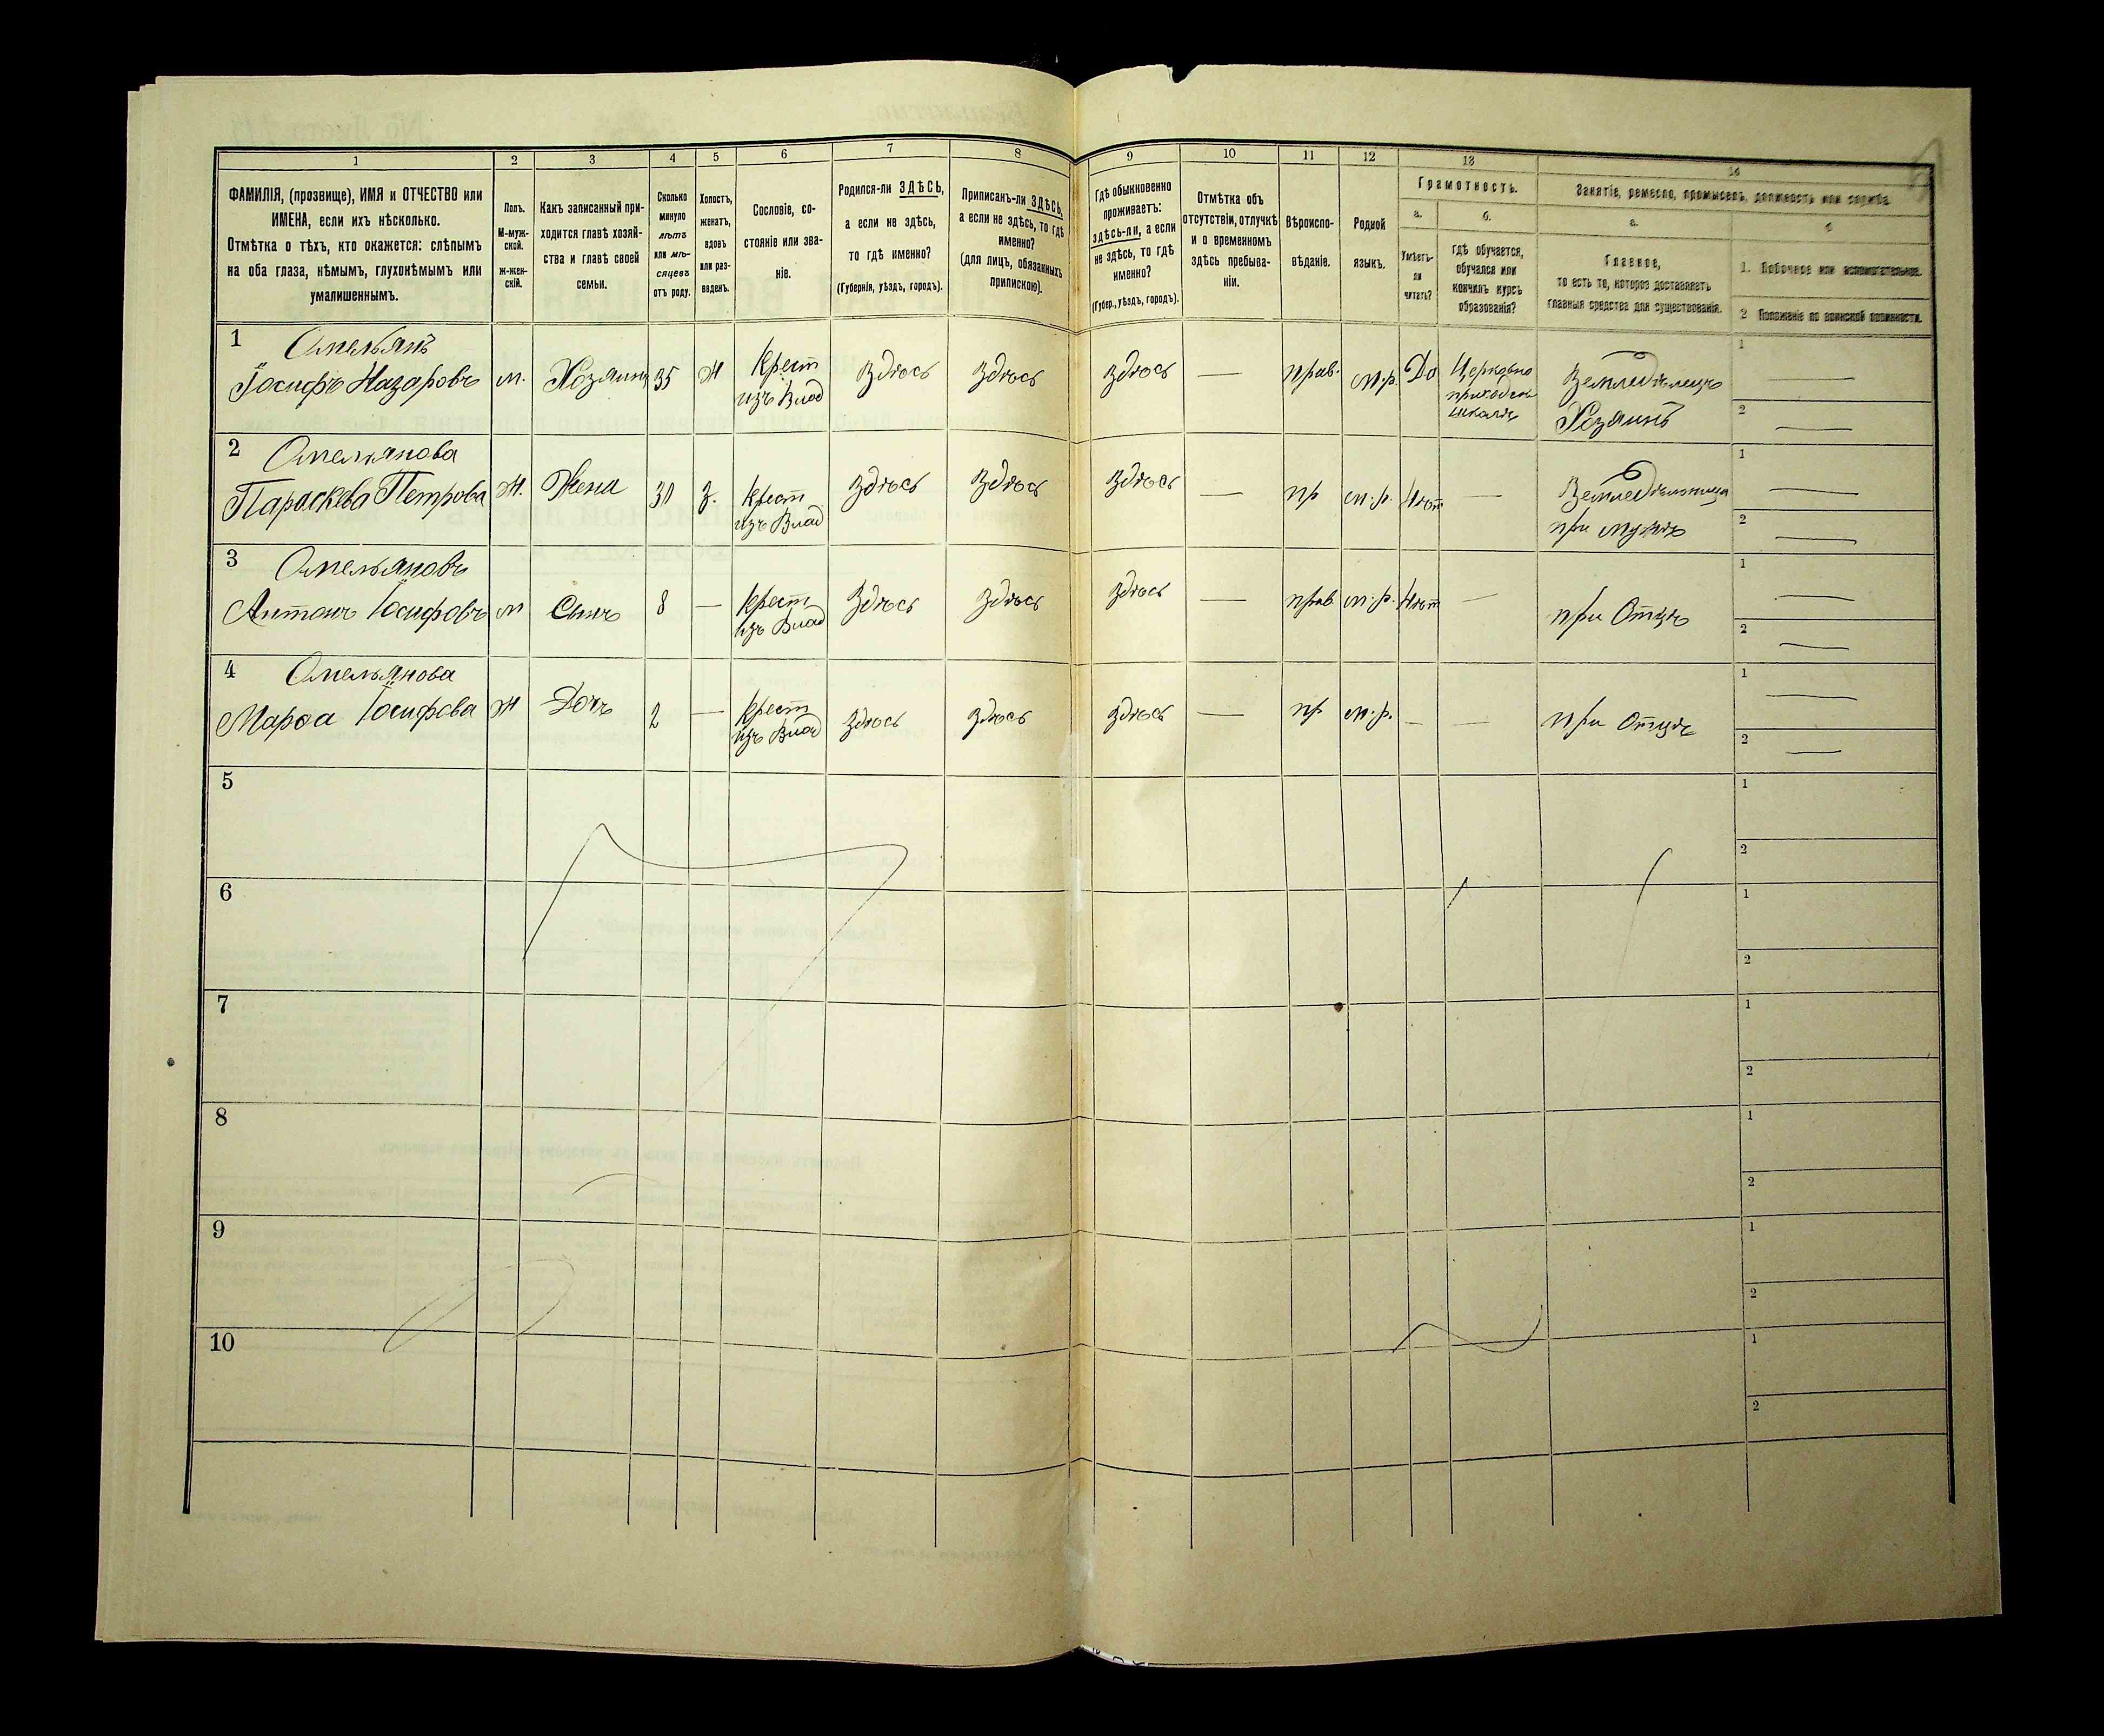 1 2 3 4 5 6 7 8 9 10 11 12 13 14
ФАМИЛІЯ, (прозвище), ИМЯ и ОТЧЕСТВО или
ИМЕНА, если ихъ нѣсколько.
Отмѣтка о тѣхъ, кто окажется: слѣпымъ
на оба глаза, нѣмымъ, глухонѣмымъ или
умалишеннымъ.
Полъ.
М-муж-
ской.
Ж-жен-
скій.
Какъ записанный при-
ходится главѣ хозяй-
ства и главѣ своей
семьи.
Сколько
минуло
лѣтъ
или мѣ-
сяцевъ
отъ роду.
Холостъ,
женатъ,
вдовъ
или раз-
веденъ.
Сословіе, со-
стояніе или зва-
ніе.
Родился-ли ЗДѢСЬ,
а если не здѣсь,
то гдѣ именно?
(Губернія, уѣздъ, городъ).
Приписанъ-ли ЗДѢСЬ,
а если не здѣсь, то гдѣ
именно?
(для лицъ, обязанныхъ
припискою).
Гдѣ обыкновенно
проживаетъ:
здѣсь-ли, а если
не здѣсь, то гдѣ
именно?
(Губер., уѣздъ, городъ).
Отмѣтка объ
отсутствіи, отлучкѣ
и о временномъ
здѣсь пребыва-
ніи.
Вѣроиспо-
вѣданіе.
Родной
языкъ.
Грамотность.
а.
Умѣетъ-
ли
читать?
б.
гдѣ обучается,
обучался или
кончилъ курсъ
образованія?
Занятіе, ремесло, промыселъ, должность или служба.
а.
Главное,
то есть то, которое доставляетъ
главныя средства для существованія.
б
1. Побочное или вспомогательное.
2 Положеніе по воинской повинности.
1 Омельянъ
Іосифъ Назаровъ м. Хозяинъ 35 Ж Крест
изъ Влад здѣсь здѣсь здѣсь — прав. м.р. Да Церковно
приходск
школѣ Земледѣлецъ
Хозяинъ
1 —
2 —
2 Омельянова
Параскева Петрова Ж. Жена 30 З. Крест
изъ Влад здѣсь здѣсь здѣсь — пр м.р. Нѣт — Земледѣльница
при мужѣ
1 —
2 —
3 Омельяновъ
Антонъ Іосифовъ м Сынъ 8 — Крест
изъ Влад здѣсь здѣсь здѣсь — прав м.р. Нѣт — при Отцѣ
1 —
2 —
4 Омельянова
Марѳа Іосифова Ж Дочь 2 — Крест
изъ Влад здѣсь здѣсь здѣсь — пр м.р. — — при Отцѣ
1 —
2 —
5 1
2
6 1
2
7 1
2
8 1
2
9 1
2
10 1
2